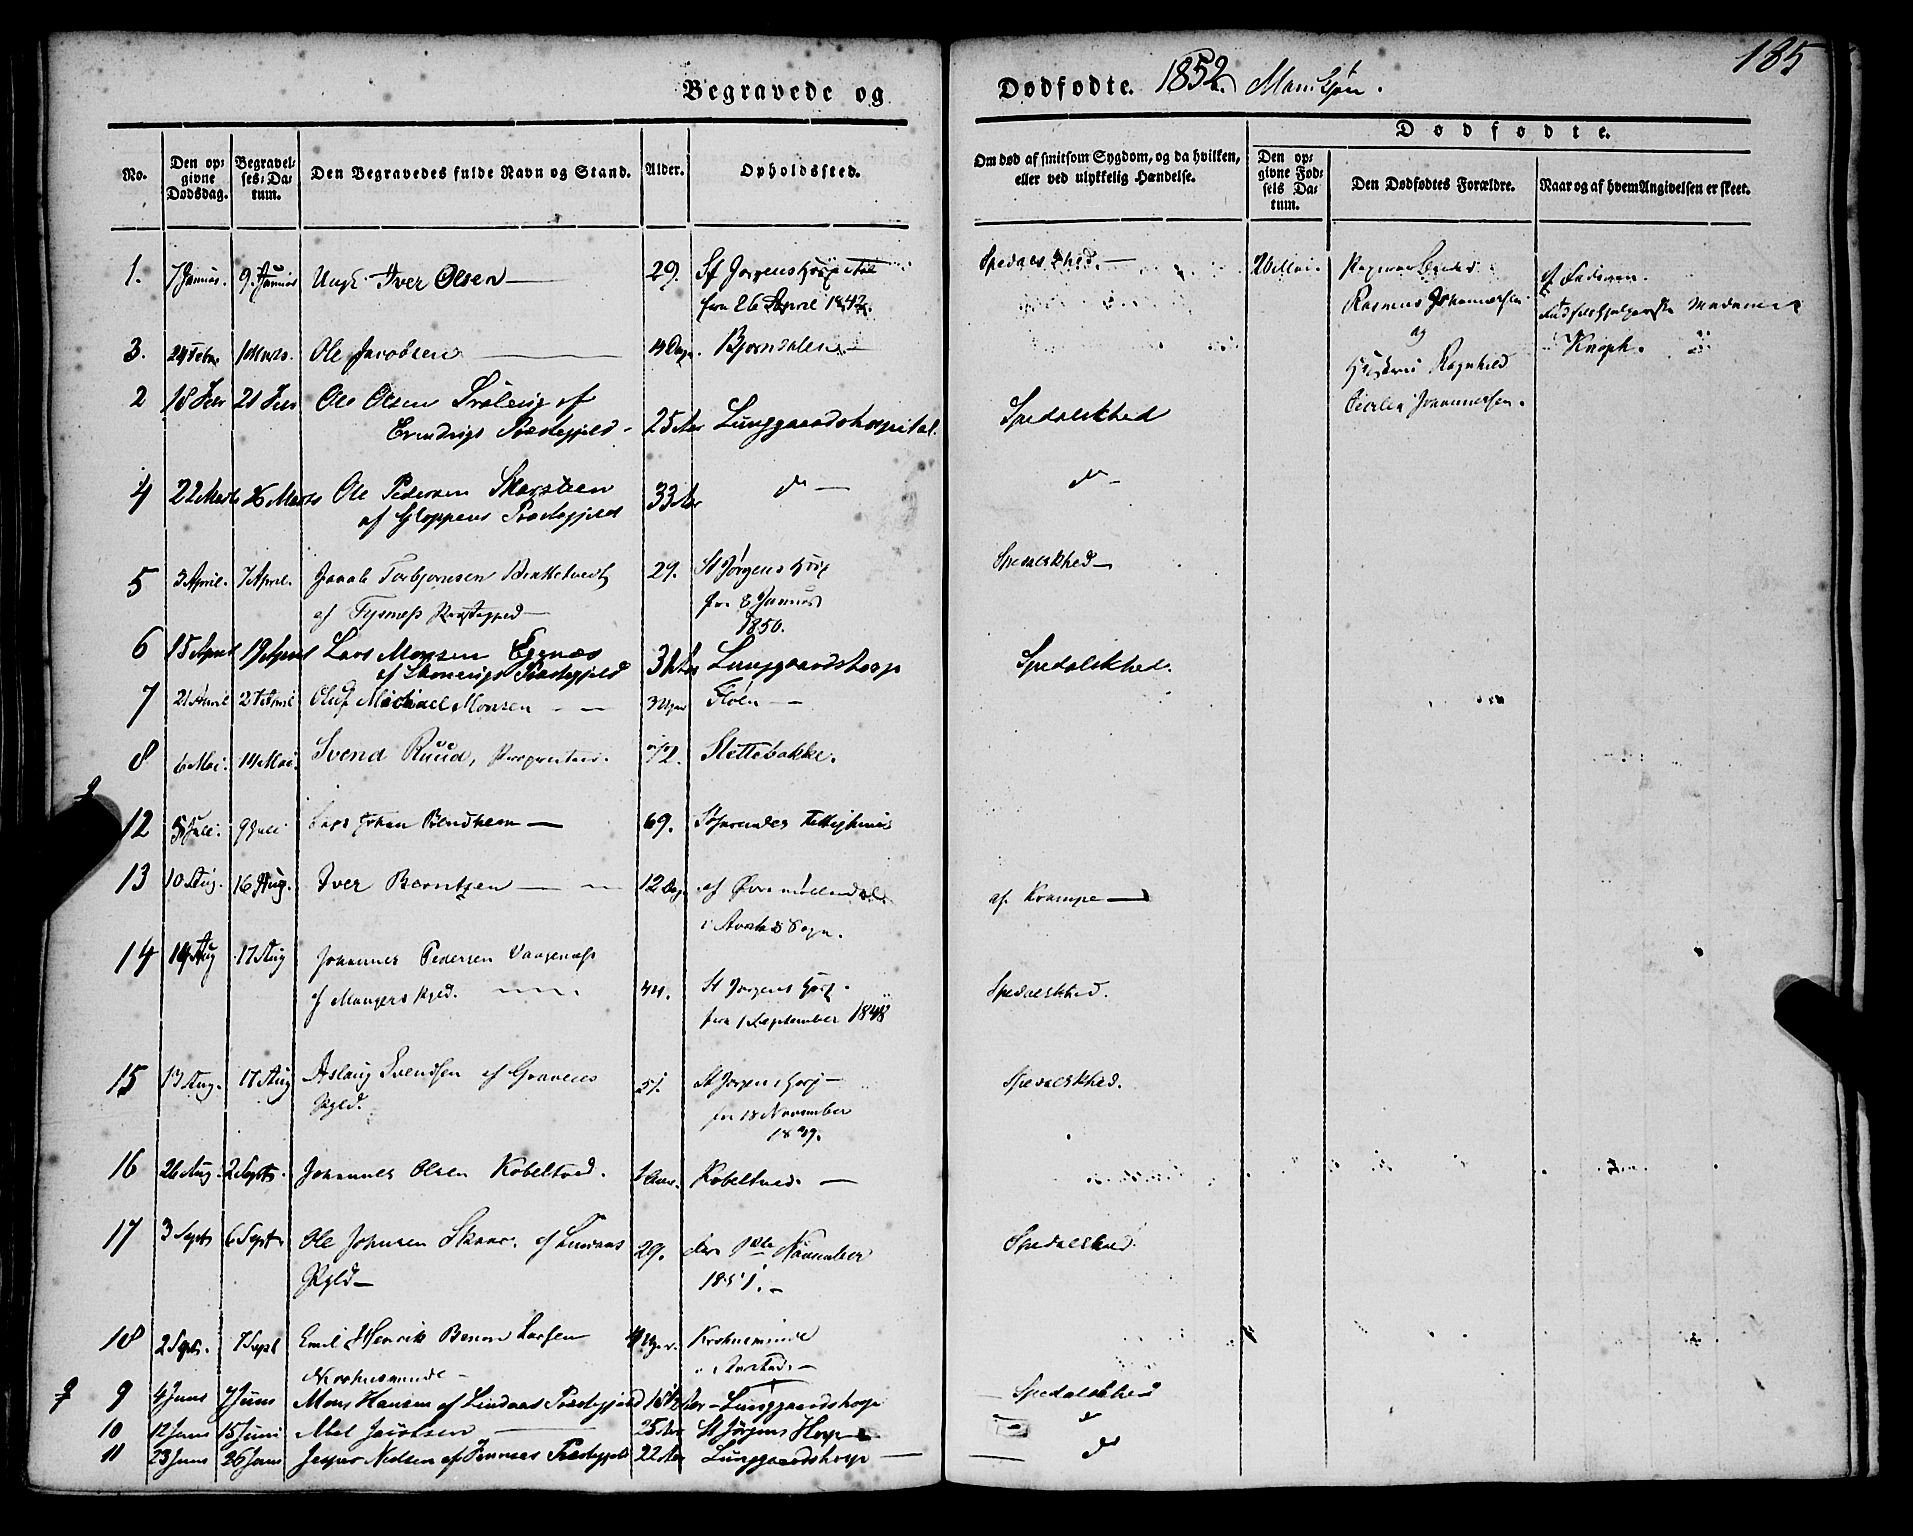 185
Begravede og Dødfødte. 1852. Mandkjøn.
No.
Den opgivne Dødsdag.
Begravelses-Datum.
Den Begravedes fulde Navn og Stand.
Alder.
Opholdssted.
Om død af smitsom Sygdom, og da hvilken, eller ved ulykkelig Hændelse.
Dødfødte.
Den opgivne Fødsels Datum.
Den Dødfødtes Forældre.
Naar og af hvem Angivelsen er skeet.
1. 7 Januar. 9. Januar Ungk. Iver Olsen — 29. St Jørgens Hospital Spedalskhed. —
fra 26 April 1842.
Rasmus Johannessen
og
Hustru Ragnhild
Johannessen.
af Faderen.
Madame
Knoph.
3. 24 Febr 1 Marts. Ole Jacobsen — 4 Dage. Bjørndalen —
2 18 Febr 21 Febr Ole Olsen af
Evindvigs Præstegjeld - 25 Aar Lunggaardshospital. Spedalskhed
4 22 Marts 26 Marts Ole Pedersen Skarsteen
af Gloppens Præstegjeld 33 Aar do — do -
5 3 April. 7 April. Jacob Torbjørnsen 29. St Jørgens Hosp Spedalskhed —
af Tysnæss Præstegjeld — fra 8 Januar
1850.
6 15 April 19 April Lars Monsen Egenæs
af Præstegjeld Aar Lunggaardshosp Spedalskhed.
7 21 April 27 April Oluf Michael Monsen — — 3 Uger Fløen —
8 6 Mai. 14 Mai. Svend Ruud, Proprietair. 72. Slettebakke.
12 5 Juli. 9 Juli Lars Johan Bendixen — 69.
13 10 Aug. 16 Aug. Iver Berntsen — 12 Dage af Øvre Møllendal af Krampe —
i Aarstad Sogn.
14 14 Aug 17 Aug Johannes Pedersen Vaagenæss
af Mangers Pgld. 44. St Jørgens Hosp. Spedalskhed.
fra 1 September 1848
15 13 Aug. 17 Aug Aslaug Svendsen af Gravens 51. St Jørgens Hosp — Spedalskhed.
Pgld. fra 18 November
1839.
16 26 Aug 2 Septb. Johannes Olsen Kobeltved. 1 Aar. Kobeltved. —
17 3 Septb 6 Septbr Ole Johnsen Skaar. af Lindaas 29. den November Spedalskhed.
Pgld — 1851. —
18 2 Septb. 7 Septb Emil Henrik Larsen Uger. Krohnsminde
Krohnsminde — i Aarstad. —
9 4 Juni 7 Juni Mons Hansen af Lindaas Præstegjeld Aar — Lunggaardshosp — Spedalskhed
10 12 Juni 15 Juni Abel Jacobsen — 25 Aar St Jørgens Hosp — do
11 23 Juni 26 Juni Jesper Nielsen af Præstegjeld 22 Aar Lunggaardshosp — do